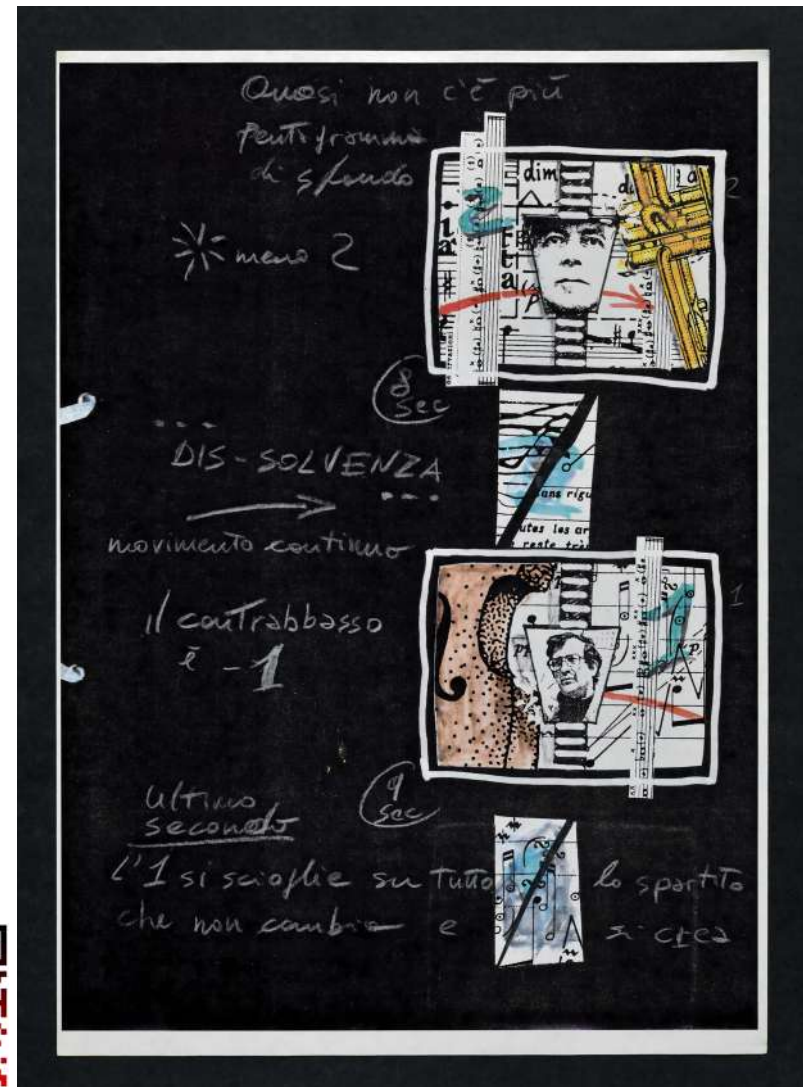 Quasi non c'è più
Pentagramma
di sfondo
meno 2
dim
2
2
tra
8
sec
DIS-SOLVENZA
movimento continuo
sans rigu
utes les ar
reste trè
il contrabbasso
è -1
1
1
9
sec
Ultimo
secondo
L'1 si scioglie su tutto lo spartito
che non cambia e si crea